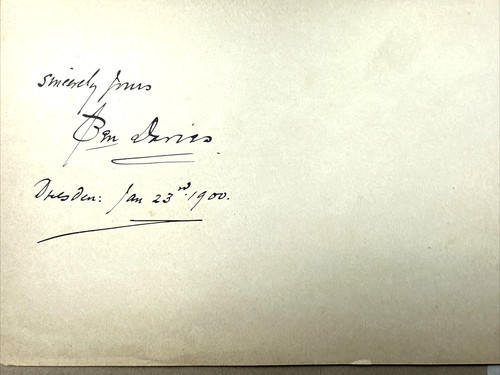 sincerely yours
Ben Davies.
Dresden: Jan 23rd. 1900.